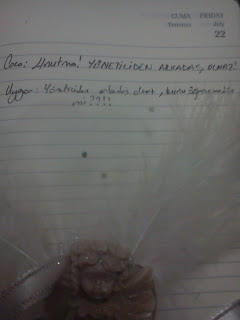 CUMA FRIDAY
Temmuz July
22
Coco: Unutma! YÖNETİCİDEN ARKADAŞ OLMAZ!
Uygar: Yöneticiden arkadaş olmaz, bunu
mi????